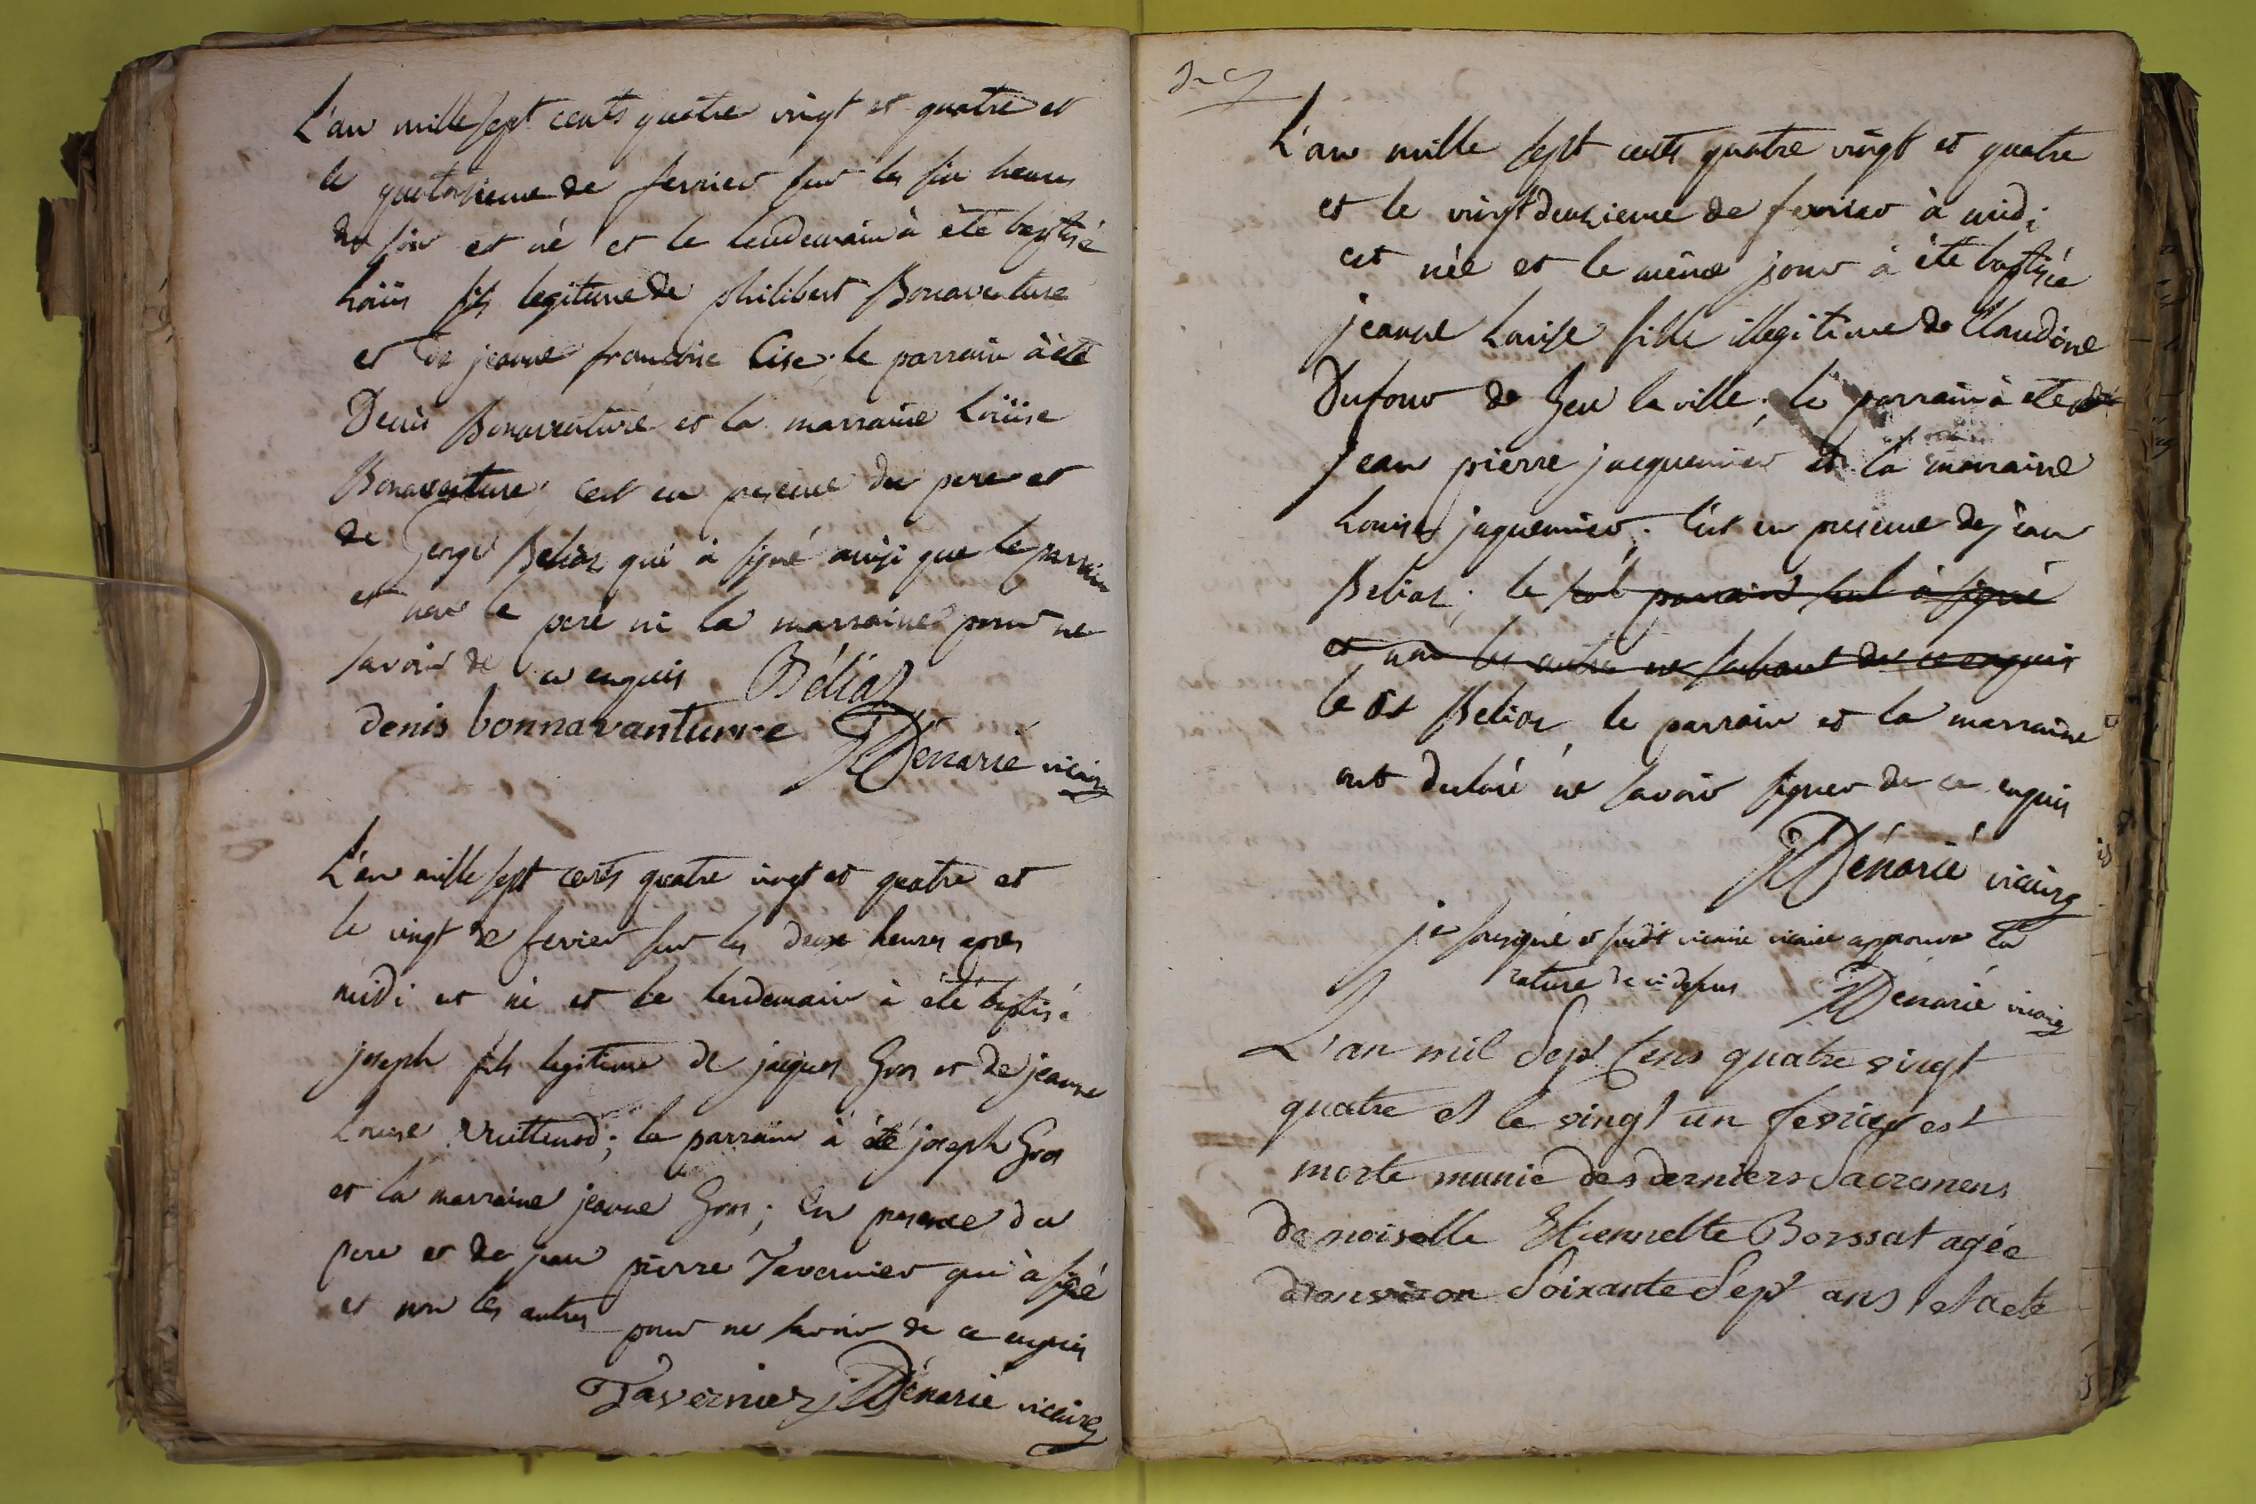 L'an mille sept cents quatre vingt et quatre et
le quatorsieme de fevrier sur les six heures
du soir est né et le lendemain à été baptisé
Loüis fils legitime de philibert Bonaventure
et de jeanne francoise Lise; le parrain à été
Denis Bonaventure et la marraine Loüise
Bonaventure; c'est en presence du pere et
de george Beliaz qui à signé ainsi que le parrain
et non le pere ni la marraine pour ne
savoir de ce enquis Béliaz
denis bonnavanturre JDénarié vicaire
L'an mille sept cents quatre vingt et quatre et
le vingt de fevrier sur les deux heures apres
midi est né et le lendemain à été baptisé
joseph fils legitime de jaques Gros et de jeanne
Louise Vuittenod; le parrain à été joseph Gros
et la marraine jeanne Gros; en presence du
pere et de jean pierre Tavernier qui à signé
et non les autres pour ne savoir de ce enquis
Tavernier JDénarié vicaire
L'an mille sept cents quatre vingt et quatre
et le vingt deuxieme de fevrier à midi
est née et le même jour à été baptisée
jeanne Louise fille illegitime de Claudine
Dufour de Gex la ville; le parrain à été
jean pierre jacquemier et la marraine
Louise jaquemier; c'est en presence de jean
Beliaz; le parrain seul à signé
et non les autres ne sachant de ce enquis
le dt Beliaz le parrain et la marraine
ont declaré ne savoir signer de ce enquis
JDénarié vicaire
je sousigné et susdit vicaire vicaire approuve la
rature de ci dessus JDénarié vicaire
L'an mil Sept Cens quatre vingt
quatre et le vingt un fevrier est
morte munie des derniers Sacremens
demoiselle Etiennette Borssat agée
d'environ Soixante Sept ans et a eté